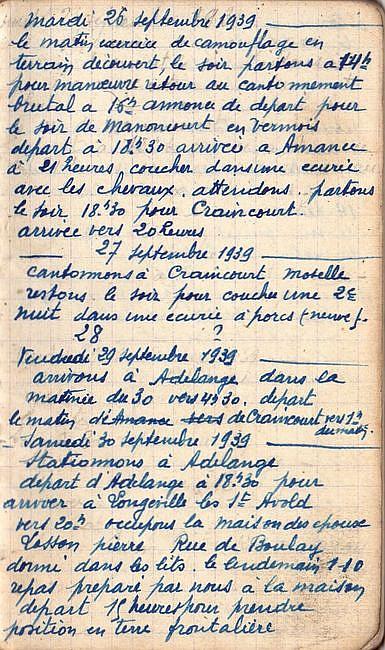 Mardi 26 septembre 1939
le matin exercice de camouflage en
terrain découvert, le soir partons a 14h
pour manœuvre retour au cantonnement
brutal a 16h annonce de depart pour
le soir de Manoncourt en Vermois
depart à 18h30 arrivée a Amance
à 21 heures, coucher dans une ecurie
avec les chevaux. attendons. partons
le soir 18h30 pour Craincourt.
arrivée vers 20 heures
27 septembre 1939
cantonnons à Craincourt moselle
restons le soir pour coucher une 2e
nuit dans une écurie à porcs (neuve).
28 ?
Vendredi 29 septembre 1939
arrivons à Adelange dans la
matinée du 30 vers 4h30. depart
le matin d'Amance vers de Craincourt vers 1h
du matin.
Samedi 30 septembre 1939
Stationnons à Adelange
depart d'Adelange à 18h30 pour
arriver à Longeville les St Avold
vers 20h occupons la maison des epoux
Losson pierre Rue de Boulay
dormi dans les lits. le lendemain 1-10
repas preparé par nous à la maison
depart 15 heures pour prendre
position en terre frontalière